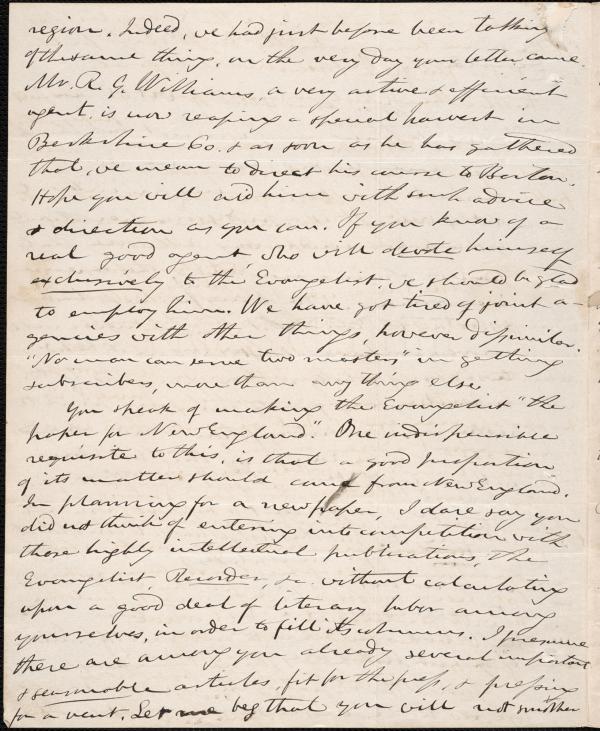 region. Indeed, we had just before been talking
of the same thing, on the very day your letter came.
Mr. R. G. Williams, a very active & efficient
agent, is now reaping a special harvest in
Berkshire Co. & as soon as he has gathered
that, we mean to direct his course to Boston.
Hope you will aid him with such advice
& direction as you can. If you know of a
real good agent, who will devote himself
exclusively to the Evangelist, we should be glad
to employ him. We have got tired of joint a-
gencies with other things, however dissimilar.
"No man can serve two masters" in getting
subscribers, more than any thing else.
You speak of making the Evangelist "the
paper for New England." One indispensible
requisite to this, is that a good proportion
of its matter should come from New England.
In planning for a new paper, I dare say you
did not think of entering into competition with
those highly intellectual publications, the
Evangelist, Recorder, &c. without calculating
upon a good deal of literary labor among
yourselves, in order to fill its columns. I presume
there are among you already several important
& seasonable articles, fit for the press, & pressing
for a vent. Let me beg that you will not smother